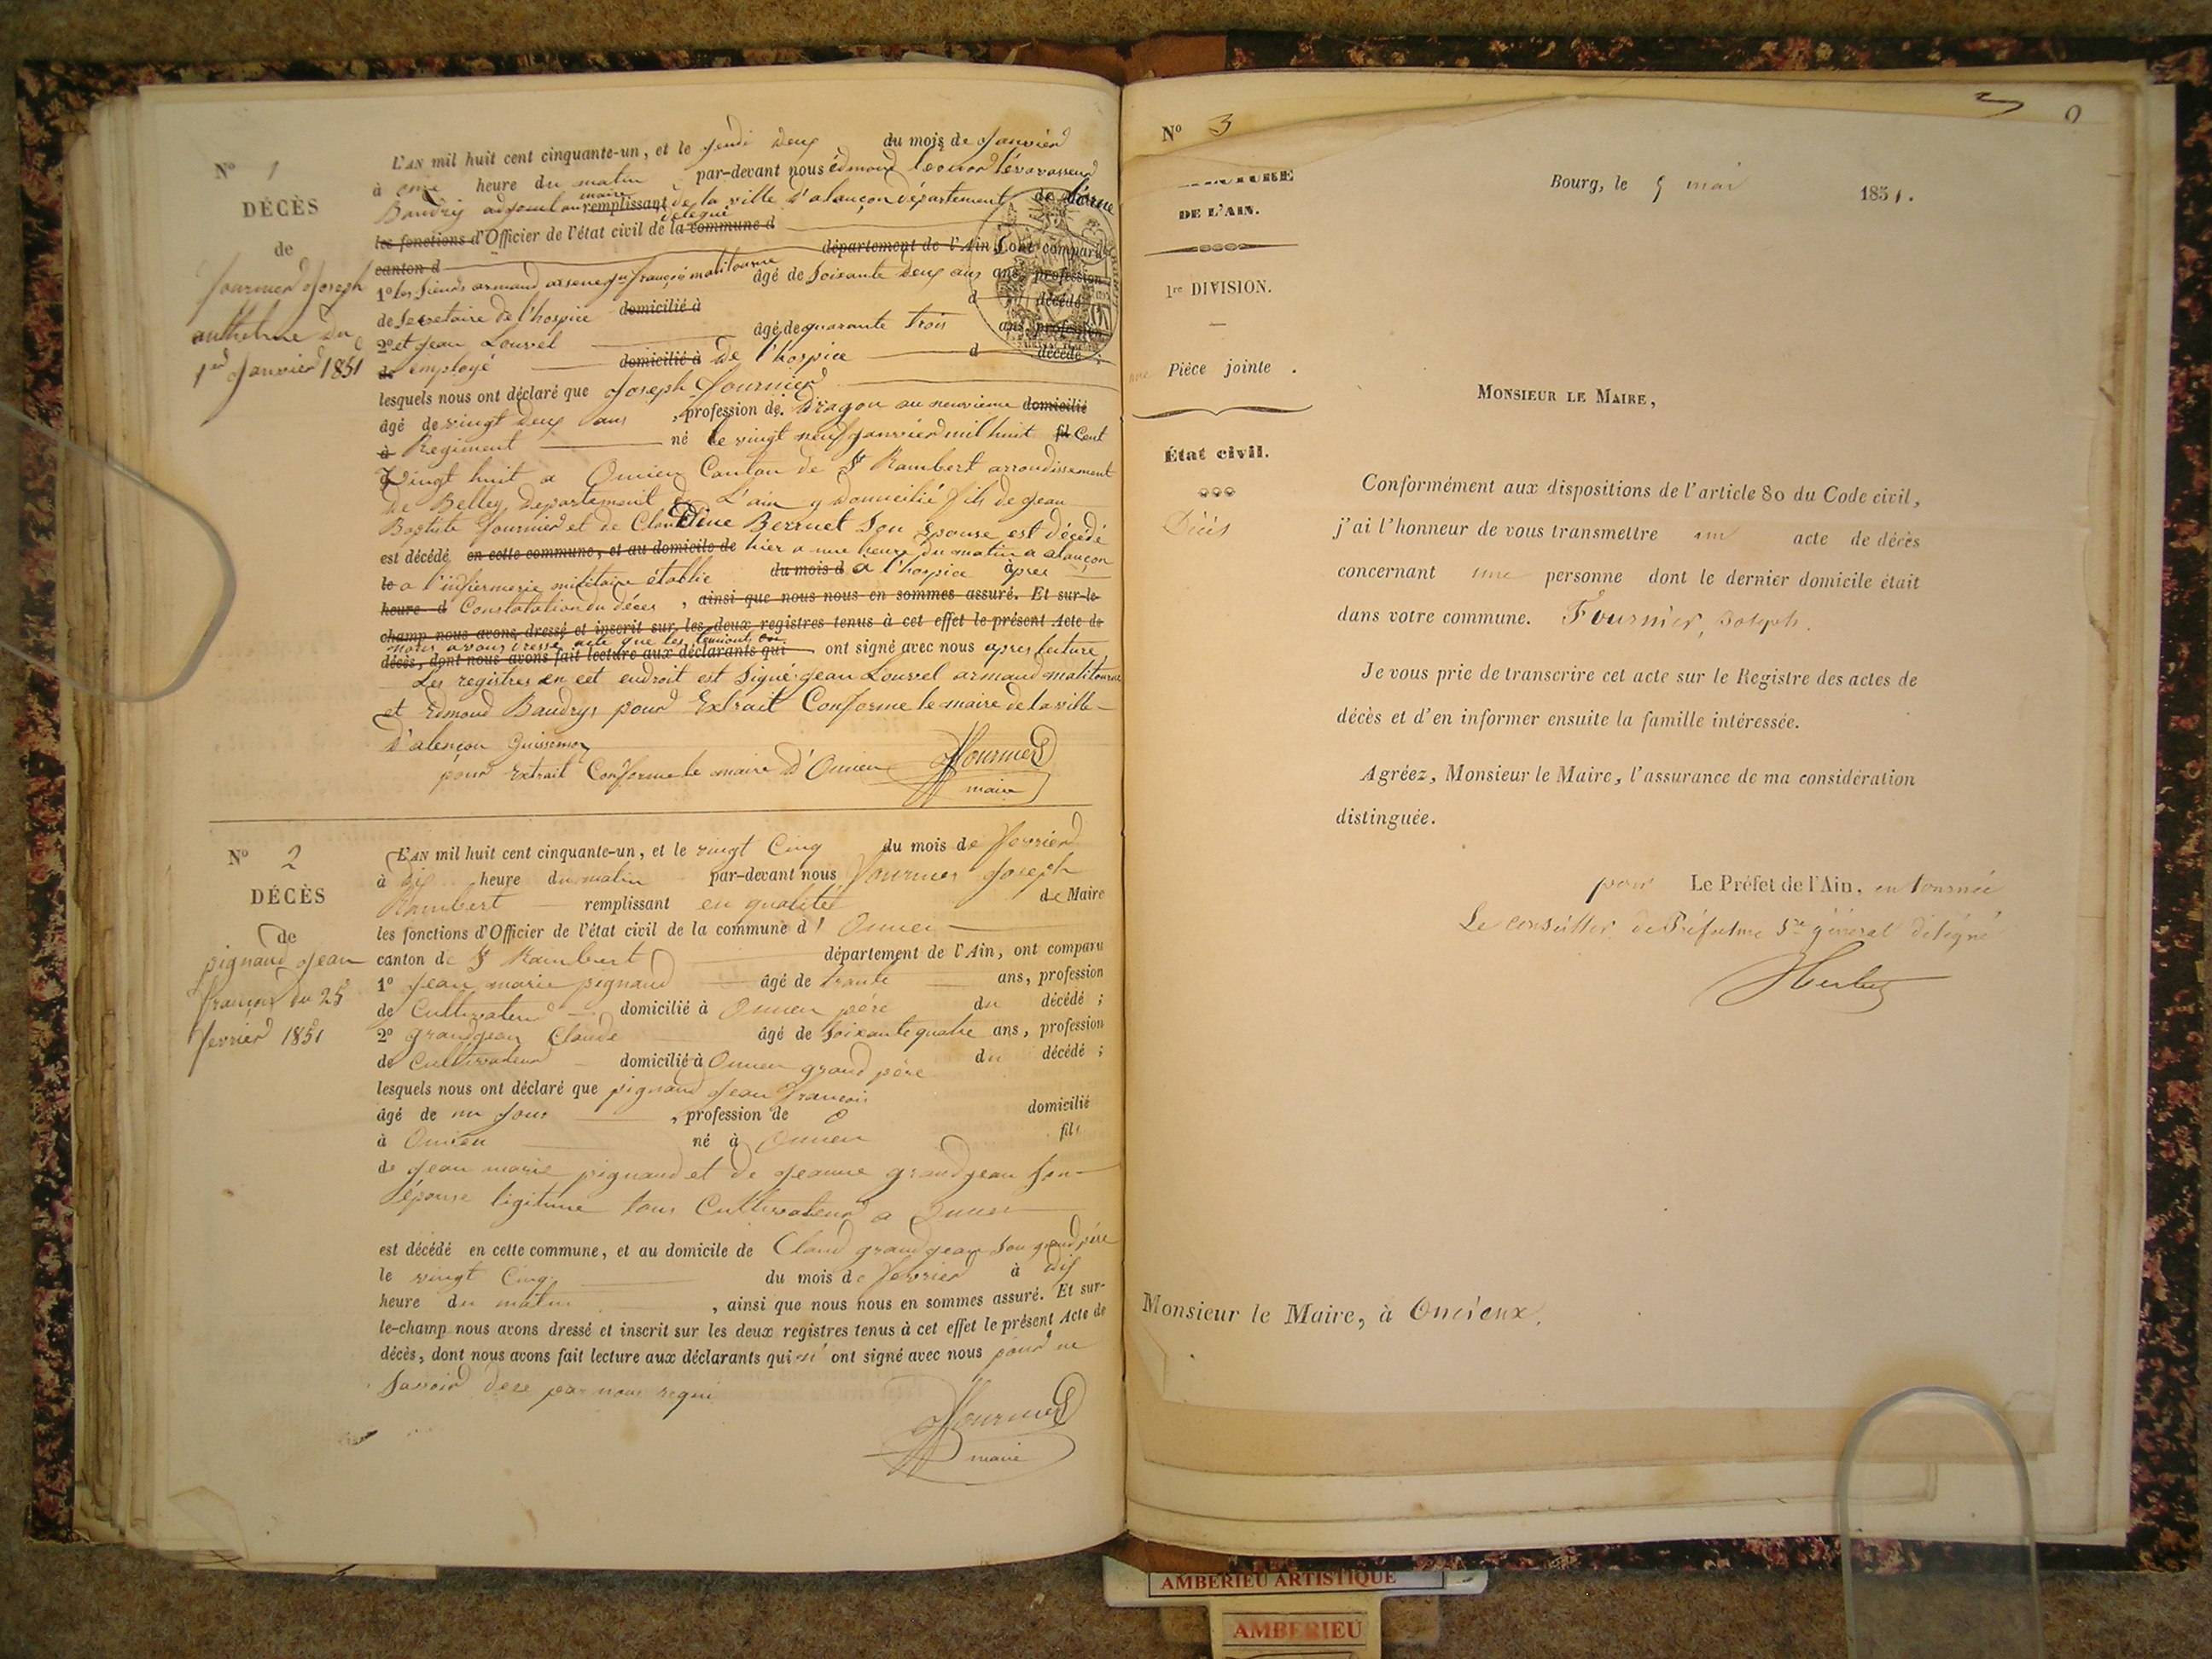 N° 1
DÉCÈS
de
fournier Joseph
anthelme du
1er Janvier 1851
L'AN mil huit cent cinquante-un, et le jeudi deux du mois de Janvier
à onze heure du matin par-devant nous édmond leonor lévavasseur
Baudry adjoint au maire remplissant de la ville d'alançon département de l'orne
les fonctions d'Officier de l'état civil délégué de la commune d
canton d département de l'Ain Sont comparu
1° les sieurs armand arsene jn françois malitourne âgé de Soixante deux ans ans, profession
de Secretaire de l'hospice domicilié à d décédé
2° et Jean Louvel âgé de quarante trois ans, profession
de employé domicilié à de l'hospice d décédé ;
lesquels nous ont déclaré que Joseph fournier
âgé de vingt deux ans , profession de Dragon au neuvieme domicilié
à Regiment né le vingt neuf Janvier mil huit fil Cent
Vingt huit a Oncieu Canton de St Rambert arrondissement
de Belley departement de L'ain y domicilié fils de Jean
Baptiste fournier et de Claudine Berruet Son Epouse est décédé
est décédé en cette commune, et au domicile de hier a une heure du matin a alançon
le a l'infiermerie militaire établie du mois d a l'hospice àpres
heure d Constatation du déces , ainsi que nous nous en sommes assuré. Et sur-le
champ nous avons dressé et inscrit sur les deux registres tenus à cet effet le présent Acte de
nous avons dressé acte que les temoints
décès, dont nous avons fait lecture aux déclarants qui ont signé avec nous apres lecture
Les registres en cet endroit est Signé Jean Louvel armand malitourne
et Edmond Baudry, pour Extrait Conforme le maire de la ville
D'alençon
pour Extrait Conforme le maire d'Oncieu
Fournier
maire
N° 2
DÉCÈS
de
pignaud Jean
françois du 25
fevrier 1851
L'AN mil huit cent cinquante-un, et le vingt Cinq du mois de fevrier
à dix heure du matin par-devant nous fournier Joseph
Rambert remplissant en qualité de Maire
les fonctions d'Officier de l'état civil de la commune d' Oncieu
canton de St Rambert département de l'Ain, ont comparu
1° Jean marie pignaud âgé de trante ans, profession
de Cultivateur domicilié à Oncieu père du décédé ;
2° grandjean Claude âgé de soixante quatre ans, profession
de Cultivateur domicilié à Oncieu grand père du décédé ;
lesquels nous ont déclaré que pignaud Jean francois
âgé de un Jour , profession de 0 domicilié
à Oncieu né à Oncieu fils
de Jean marie pignaud et de Jeanne grandjean Son
épouse ligitime tous Cultivateur a Oncieu
est décédé en cette commune, et au domicile de Claud grandjean Son grand père
le vingt Cinq du mois de fevrier à dix
heure du matin , ainsi que nous nous en sommes assuré. Et sur-
le-champ nous avons dressé et inscrit sur les deux registres tenus à cet effet le présent Acte de
décès, dont nous avons fait lecture aux déclarants qui n' ont signé avec nous pour ne
Savoir dece par nous requi
Fournier
maire
N° 3
DE L'AIN.
1re DIVISION.
une Pièce jointe .
État civil.
Décès
Bourg, le 5 mai 1851.
MONSIEUR LE MAIRE,
Conformément aux dispositions de l'article 80 du Code civil,
j'ai l'honneur de vous transmettre un acte de décès
concernant une personne dont le dernier domicile était
dans votre commune. Fournier, Joseph.
Je vous prie de transcrire cet acte sur le Registre des actes de
décès et d'en informer ensuite la famille intéressée.
Agréez, Monsieur le Maire, l'assurance de ma considération
distinguée.
pour Le Préfet de l'Ain. en tournée
Le conseiller de Préfecture Sre général délégué
Monsieur le Maire, à Oncieux.
AMBERIEU ARTISTIQUE
AMBERIEU